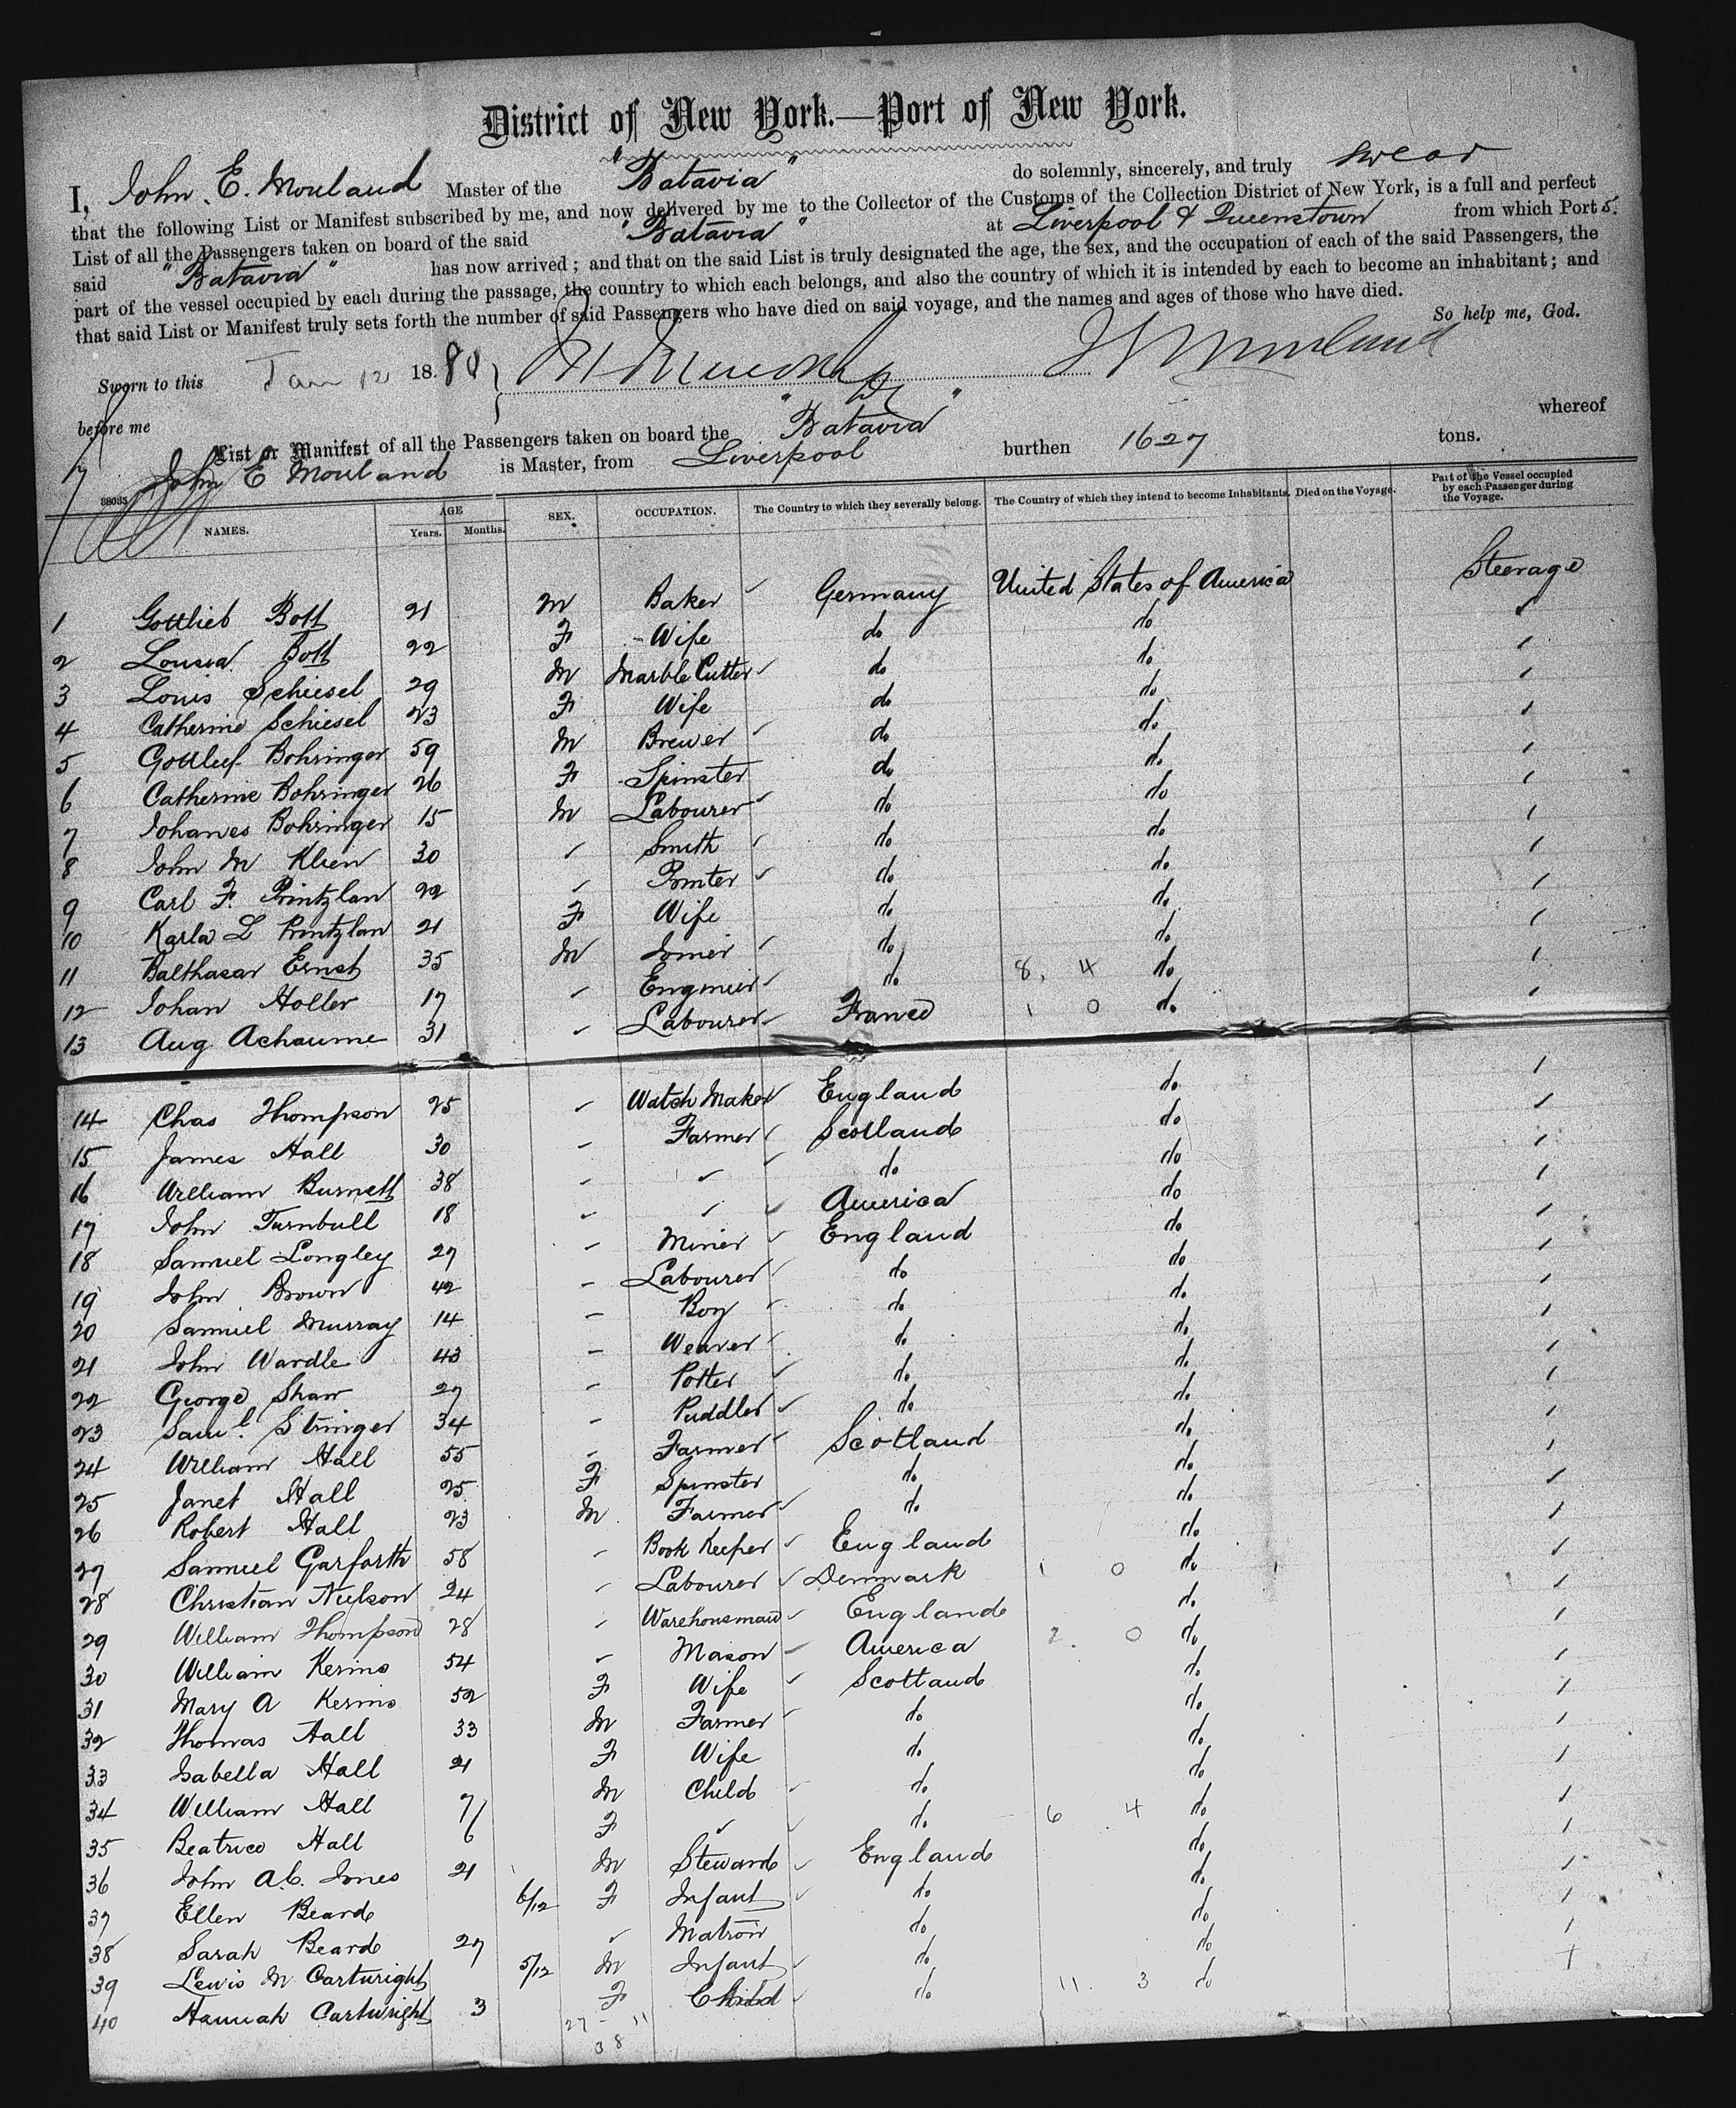 District of New York.—Port of New York.
I, John. E. Mouland Master of the "Batavia" do solemnly, sincerely, and truly swear
that the following List or Manifest subscribed by me, and now delivered by me to the Collector of the Customs of the Collection District of New York, is a full and perfect
List of all the Passengers taken on board of the said "Batavia" at Liverpool & Queenstown from which Port s.
said "Batavia" has now arrived; and that on the said List is truly designated the age, the sex, and the occupation of each of the said Passengers, the
part of the vessel occupied by each during the passage, the country to which each belongs, and also the country of which it is intended by each to become an inhabitant; and
that said List or Manifest truly sets forth the number of said Passengers who have died on said voyage, and the names and ages of those who have died.
So help me, God.
Sworn to this Jan 12 1880
before me
List or Manifest of all the Passengers taken on board the "Batavia" whereof
John E Mouland is Master, from Liverpool burthen 1627 tons.
38035
NAMES. AGE Years. Months. SEX. OCCUPATION. The Country to which they severally belong. The Country of which they intend to become Inhabitants. Died on the Voyage. Part of the Vessel occupied by each Passenger during the Voyage.
1 Gottlieb Bott 21 M Baker Germany United States of America Steerage
2 Louisa Bott 22 F Wife do do
3 Louis Schiesel 29 M Marble Cutter do do
4 Catherine Schiesel 23 F Wife do do
5 Gottlief Bohringer 59 M Brewer do do
6 Catherine Bohringer 26 F Spinster do do
7 Johanes Bohringer 15 M Labourer do do
8 John M Klien 30 Smith do do
9 Carl F. Printzlan 22 Printer do do
10 Karla L Printzlan 21 F Wife do do
11 Balthasar Ernst 35 M Joiner do do
12 Johan Holler 17 Engineer do 8, 4 do
13 Aug Achaume 31 Labourer France 1 0 do
14 Chas Thompson 25 Watch Maker England do
15 James Hall 30 Farmer Scotland do
16 William Burnett 38 do do
17 John Turnbull 18 America do
18 Samuel Longley 27 Miner England do
19 John Brown 42 Labourer do do
20 Samuel Murray 14 Boy do do
21 John Wardle 43 Weaver do do
22 George Shaw 27 Potter do do
23 Saml. Stringer 34 Puddler do do
24 William Hall 55 Farmer Scotland do
25 Janet Hall 25 F Spinster do do
26 Robert Hall 23 M Farmer do do
27 Samuel Garforth 58 Book Keeper England do
28 Christian Nielson 24 Labourer Denmark 1 0 do
29 William Thompson 28 Warehousman England do
30 William Kerins 54 Mason America 2. 0 do
31 Mary A Kerins 52 F Wife Scotland do
32 Thomas Hall 33 M Farmer do do
33 Isabella Hall 21 F Wife do do
34 William Hall 7 M Child do do
35 Beatrice Hall 6 F do 6 4 do
36 John A.C. Jones 21 M Steward England do
37 Ellen Beard 6/12 F Infant do do
38 Sarah Beard 27 Matron do do
39 Lewis M Cartwright 5/12 M Infant do do
40 Hannah Cartwright 3 F Child do 11. 3 do
27 - 11
38